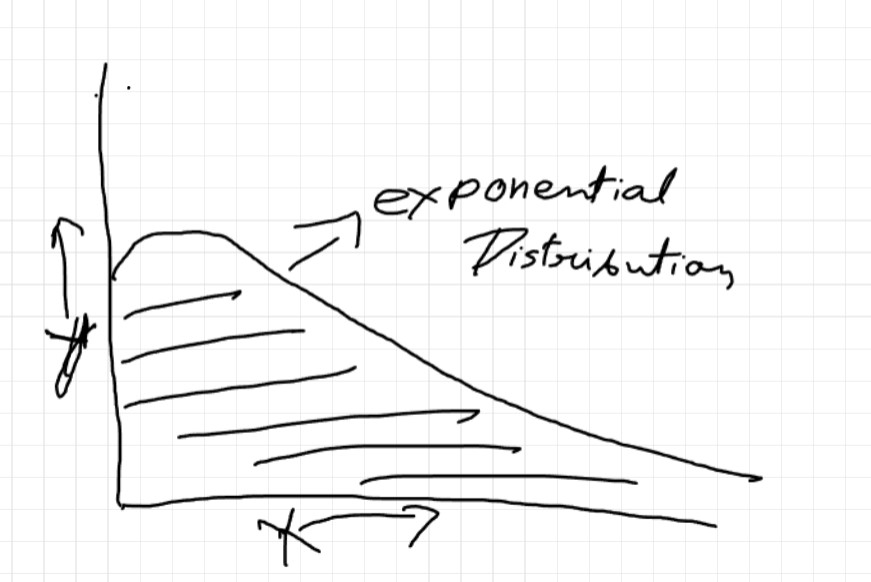 exponential
Distribution
y
x